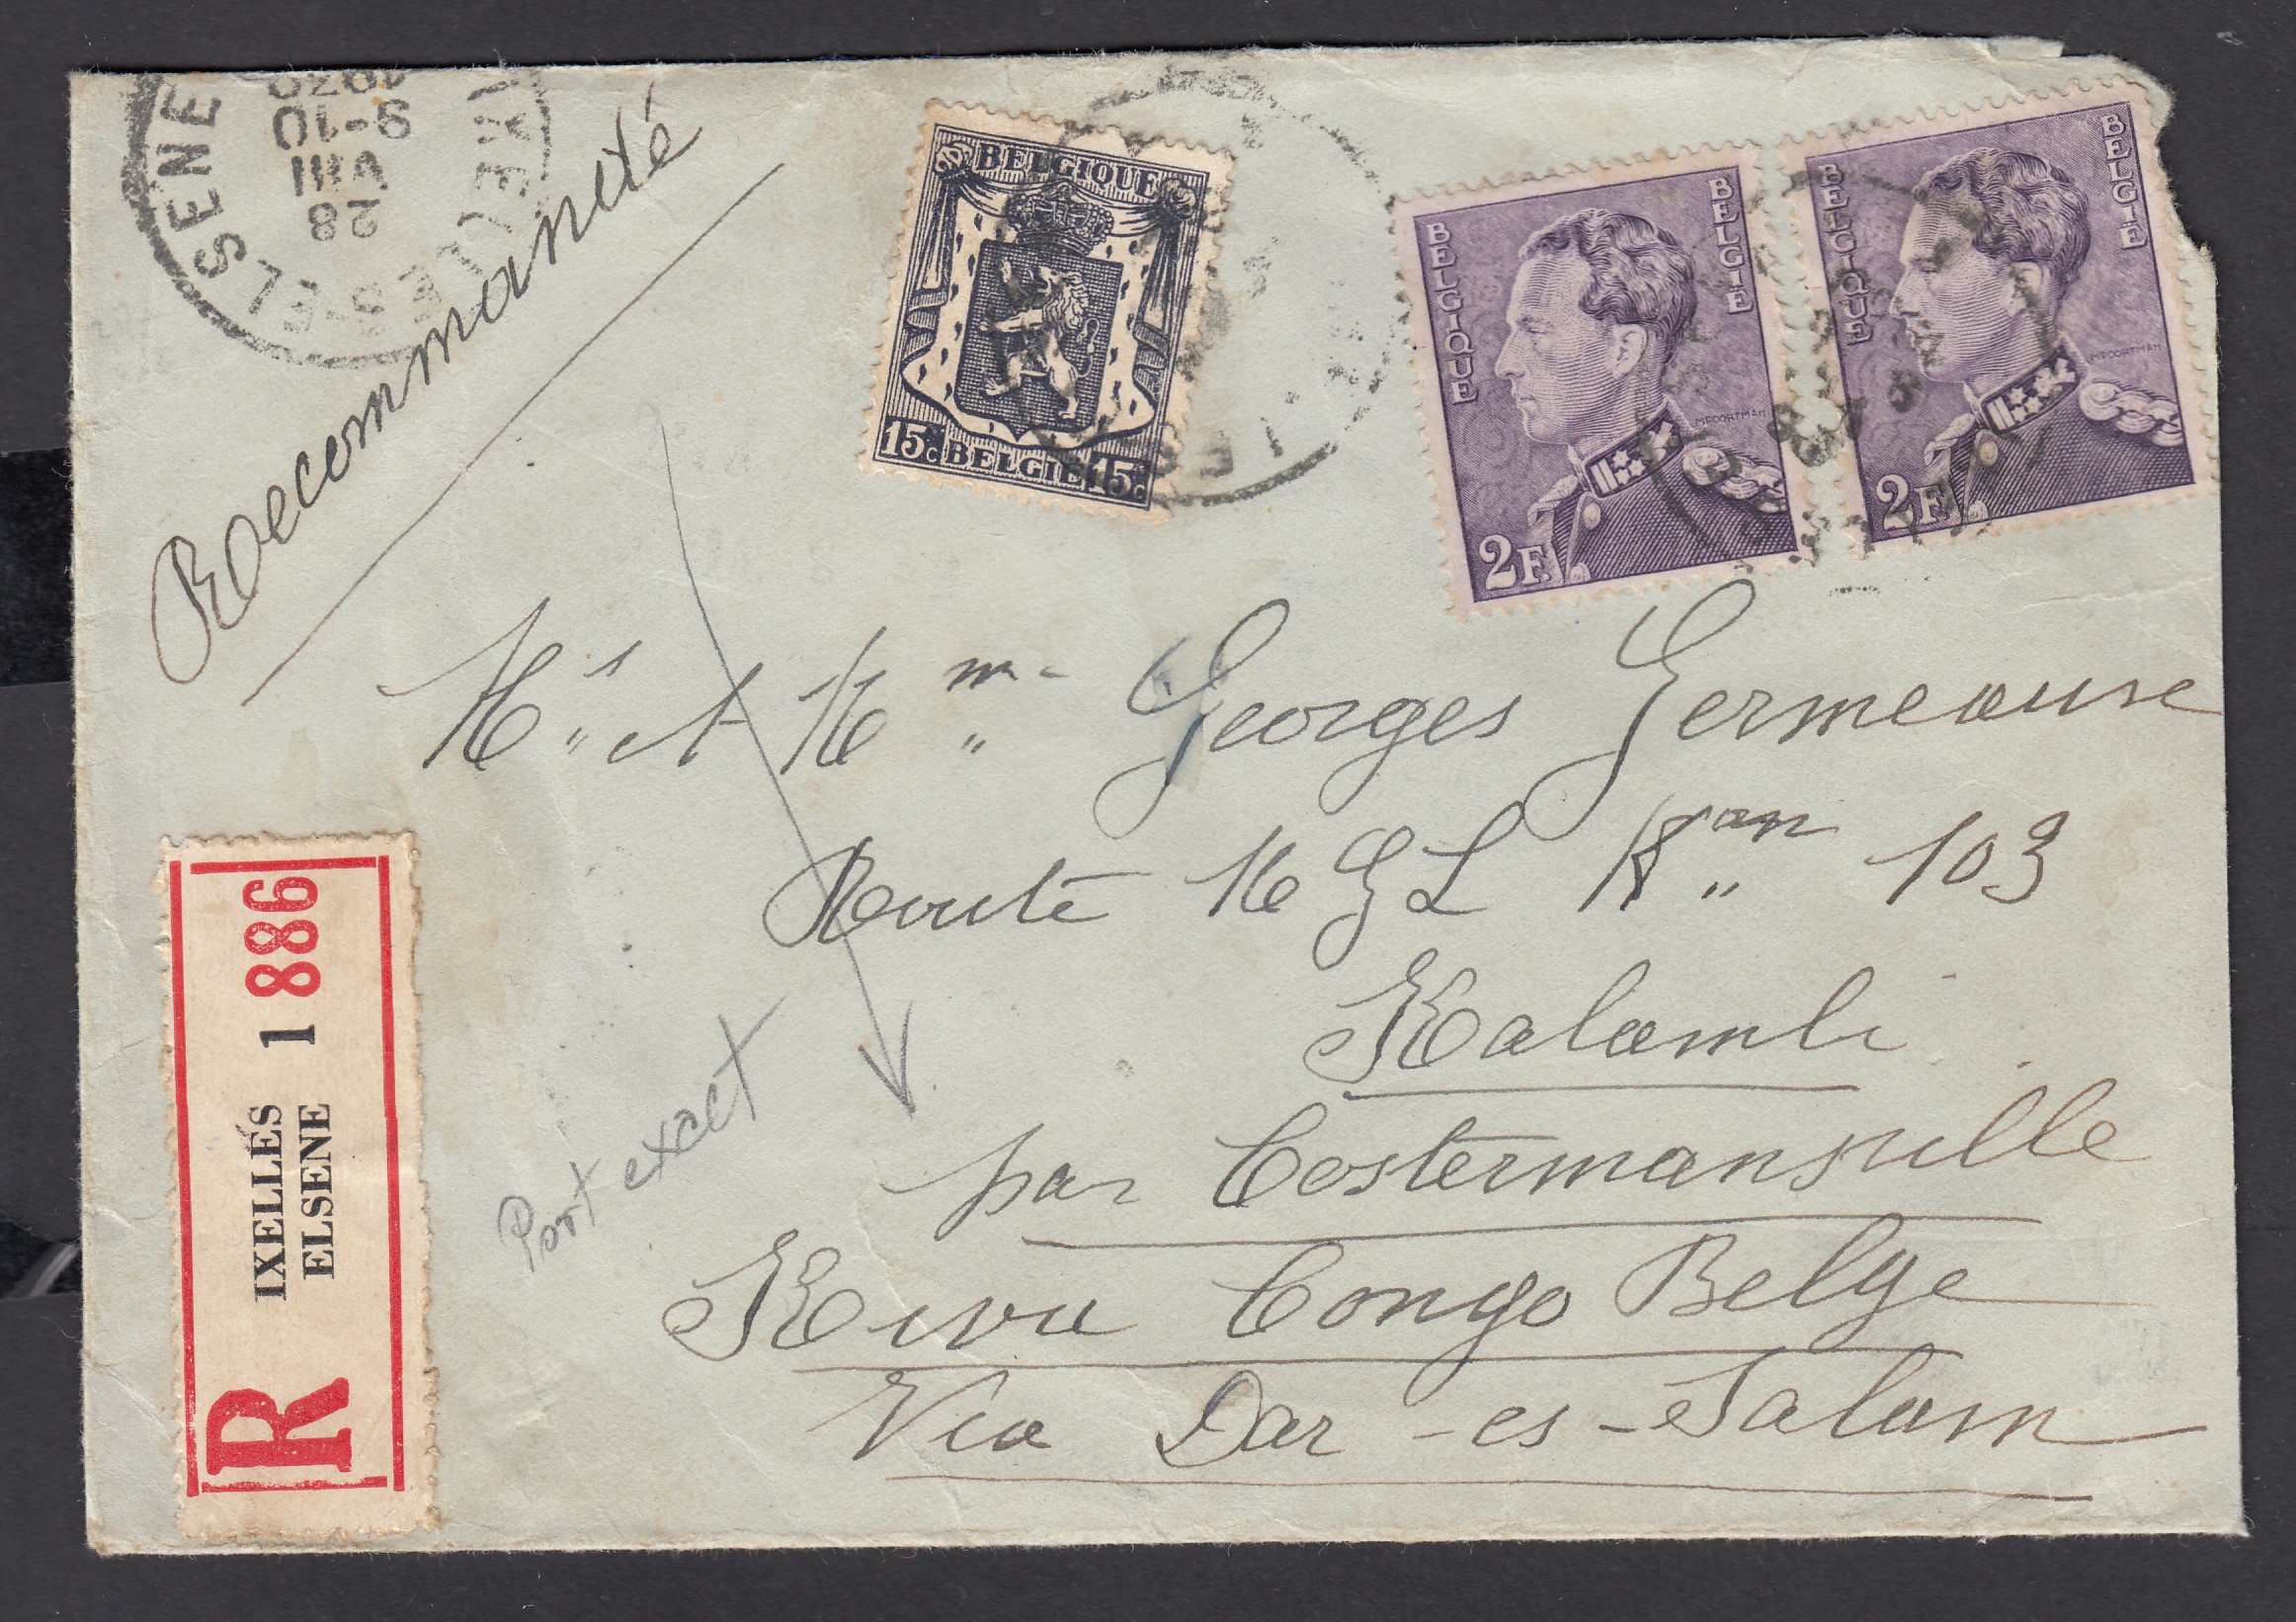 28
VIII
9-10
ELSENE
Recommandé
BELGIQUE
15c BELGIE 15c
BELGIQUE BELGIE
MEOORTMAN
2F.
BELGIQUE BELGIE
MEOORTMAN
2F.
Mr et Mme Georges Germeaune
Route MGL Km 103
Kalambi
par Costermansville
Kivu Congo Belge
Via Dar-es-Salam
Port exact
R IXELLES 1 886
ELSENE